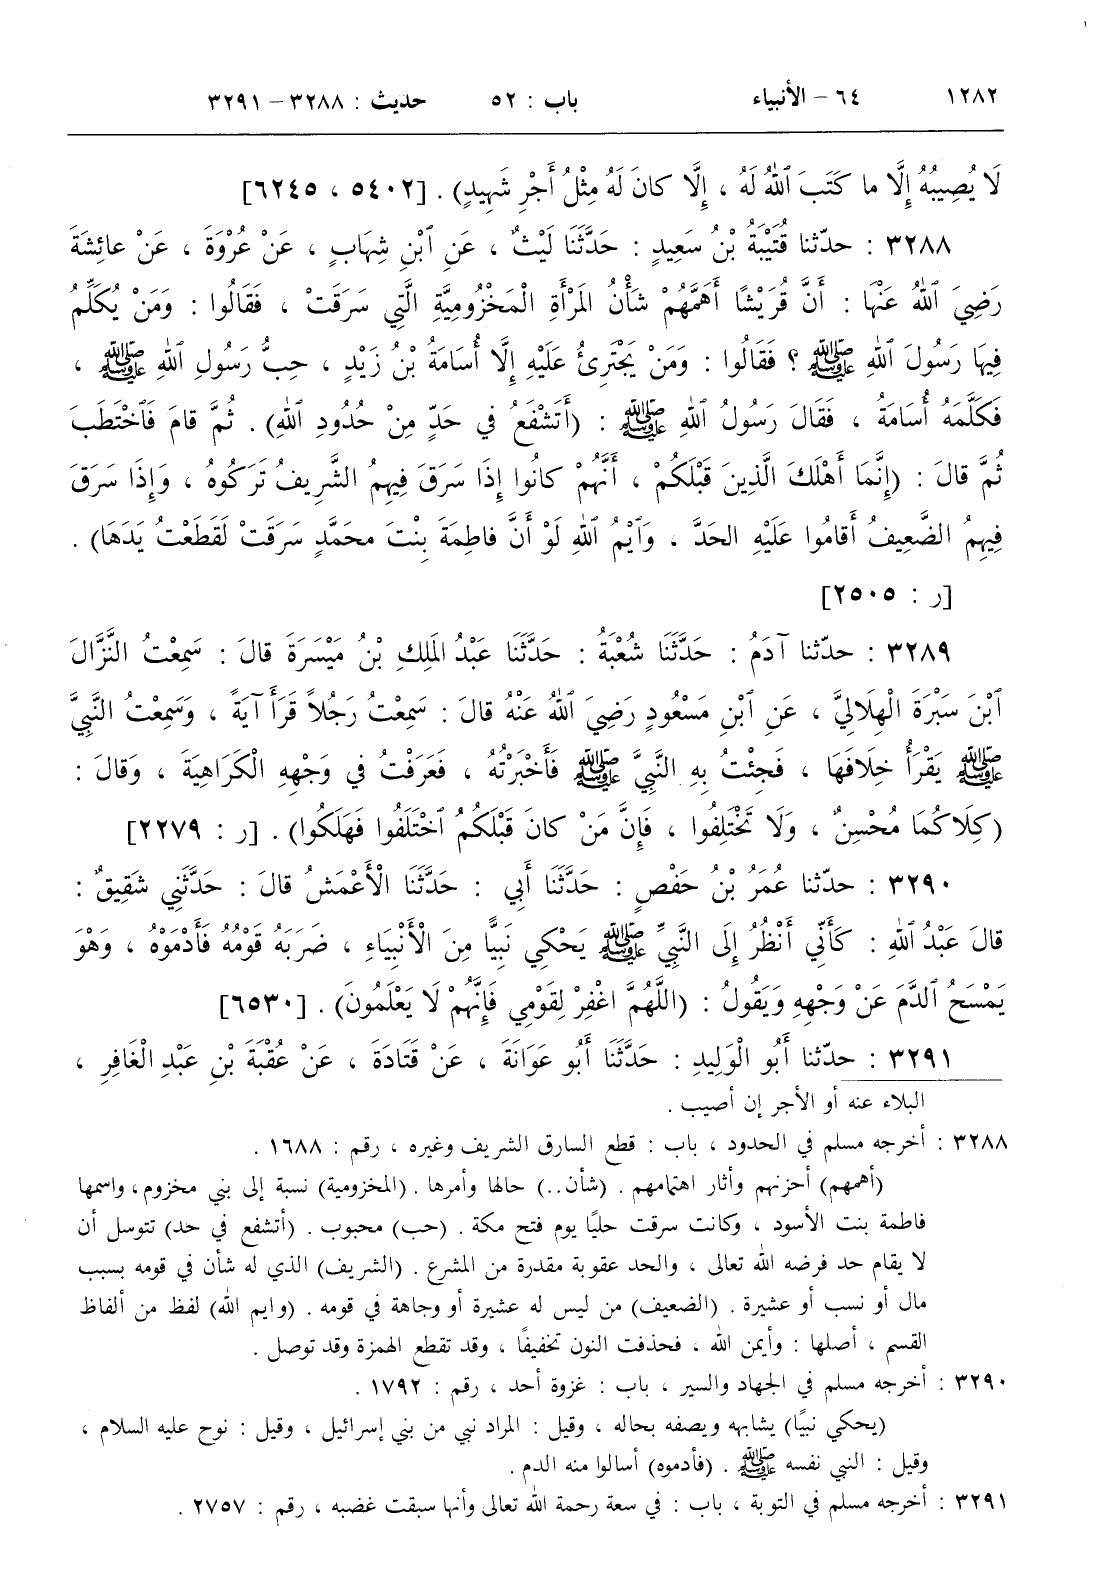 ١٢٨٢ ٦٤ – الأنبياء باب : ٥٢ حديث : ٣٢٨٨ – ٣٢٩١
لَا يُصِيبُهُ إِلَّا ما كَتَبَ ٱللهُ لَهُ ، إِلَّا كانَ لَهُ مِثْلُ أَجْرِ شَهِيدٍ) . [٥٤٠٢ ، ٦٢٤٥]
٣٢٨٨ : حدّثنا قُتَيْبَةُ بْنُ سَعِيدٍ : حَدَّثَنَا لَيْثٌ ، عَنِ ٱبْنِ شِهَابٍ ، عَنْ عُرْوَةَ ، عَنْ عائِشَةَ
رَضِيَ ٱللهُ عَنْهَا : أَنَّ قُرَيْشًا أَهَمَّهُمْ شَأْنُ المَرْأَةِ الْمَخْزُومِيَّةِ الَّتِي سَرَقَتْ ، فَقَالُوا : وَمَنْ يُكَلِّمُ
فِيهَا رَسُولَ ٱللهِ ﷺ ؟ فَقَالُوا : وَمَنْ يَجْتَرِئُ عَلَيْهِ إِلَّا أُسَامَةُ بْنُ زَيْدٍ ، حِبُّ رَسُولِ ٱللهِ ﷺ ،
فَكَلَّمَهُ أُسَامَةُ ، فَقَالَ رَسُولُ ٱللهِ ﷺ : (أَتَشْفَعُ في حَدٍّ مِنْ حُدُودِ ٱللهِ) . ثُمَّ قامَ فَٱخْتَطَبَ
ثُمَّ قالَ : (إِنَّمَا أَهْلَكَ الَّذِينَ قَبْلَكُمْ ، أَنَّهُمْ كانُوا إِذَا سَرَقَ فِيهِمُ الشَّرِيفُ تَرَكُوهُ ، وَإِذَا سَرَقَ
فِيهِمُ الضَّعِيفُ أَقامُوا عَلَيْهِ الحَدَّ ، وَٱيْمُ ٱللهِ لَوْ أَنَّ فاطِمَةَ بِنْتَ محَمَّدٍ سَرَقَتْ لَقَطَعْتُ يَدَهَا) .
[ر : ٢٥٠٥]
٣٢٨٩ : حدّثنا آدَمُ : حَدَّثَنَا شُعْبَةُ : حَدَّثَنَا عَبْدُ المَلِكِ بْنُ مَيْسَرَةَ قالَ : سَمِعْتُ النَّزَّالَ
ٱبْنَ سَبْرَةَ الْهِلَالِيَّ ، عَنِ ٱبْنِ مَسْعُودٍ رَضِيَ ٱللهُ عَنْهُ قالَ : سَمِعْتُ رَجُلاً قَرَأَ آيَةً ، وَسَمِعْتُ النَّبِيَّ
ﷺ يَقْرَأُ خِلَافَهَا ، فَجِئْتُ بِهِ النَّبِيَّ ﷺ فَأَخْبَرْتُهُ ، فَعَرَفْتُ في وَجْهِهِ الْكَرَاهِيَةَ ، وَقالَ :
(كِلَاكُمَا مُحْسِنٌ ، وَلَا تَخْتَلِفُوا ، فَإِنَّ مَنْ كانَ قَبْلَكُمُ ٱخْتَلَفُوا فَهَلَكُوا) . [ر : ٢٢٧٩]
٣٢٩٠ : حدّثنا عُمَرُ بْنُ حَفْصٍ : حَدَّثَنَا أَبي : حَدَّثَنَا الْأَعْمَشُ قالَ : حَدَّثَنِي شَقِيقٌ :
قالَ عَبْدُ اللهِ : كَأَنِّي أَنْظُرُ إِلَى النَّبِيِّ ﷺ يَحْكِي نَبِيًّا مِنَ الْأَنْبِيَاءِ ، ضَرَبَهُ قَوْمُهُ فَأَدْمَوْهُ ، وَهْوَ
يَمْسَحُ ٱلدَّمَ عَنْ وَجْهِهِ وَيَقُولُ : (اللَّهُمَّ اغْفِرْ لِقَوْمِي فَإِنَّهُمْ لَا يَعْلَمُونَ) . [٦٥٣٠]
٣٢٩١ : حدّثنا أَبُو الْوَلِيدِ : حَدَّثَنَا أَبُو عَوَانَةَ ، عَنْ قَتَادَةَ ، عَنْ عُقْبَةَ بْنِ عَبْدِ الْغَافِرِ ،
البلاء عنه أو الأجر إن أصيب .
٣٢٨٨ : أخرجه مسلم في الحدود ، باب : قطع السارق الشريف وغيره ، رقم : ١٦٨٨ .
(أهمهم) أحزنهم وأثار اهتمامهم . (شأن..) حالها وأمرها . (المخزومية) نسبة إلى بني مخزوم، واسمها
فاطمة بنت الأسود ، وكانت سرقت حليًا يوم فتح مكة . (حب) محبوب . (أتشفع في حد) تتوسل أن
لا يقام حد فرضه الله تعالى ، والحد عقوبة مقدرة من المشرع . (الشريف) الذي له شأن في قومه بسبب
مال أو نسب أو عشيرة . (الضعيف) من ليس له عشيرة أو وجاهة في قومه . (وايم الله) لفظ من ألفاظ
القسم ، أصلها : وأيمن الله ، فحذفت النون تخفيفًا ، وقد تقطع الهمزة وقد توصل .
٣٢٩٠ : أخرجه مسلم في الجهاد والسير ، باب : غزوة أحد ، رقم : ١٧٩٢ .
(يحكي نبيًا) يشابهه ويصفه بحاله ، وقيل : المراد نبي من بني إسرائيل ، وقيل : نوح عليه السلام ،
وقيل : النبي نفسه ﷺ . (فأدموه) أسالوا منه الدم .
٣٢٩١ : أخرجه مسلم في التوبة ، باب : في سعة رحمة الله تعالى وأنها سبقت غضبه ، رقم : ٢٧٥٧ .